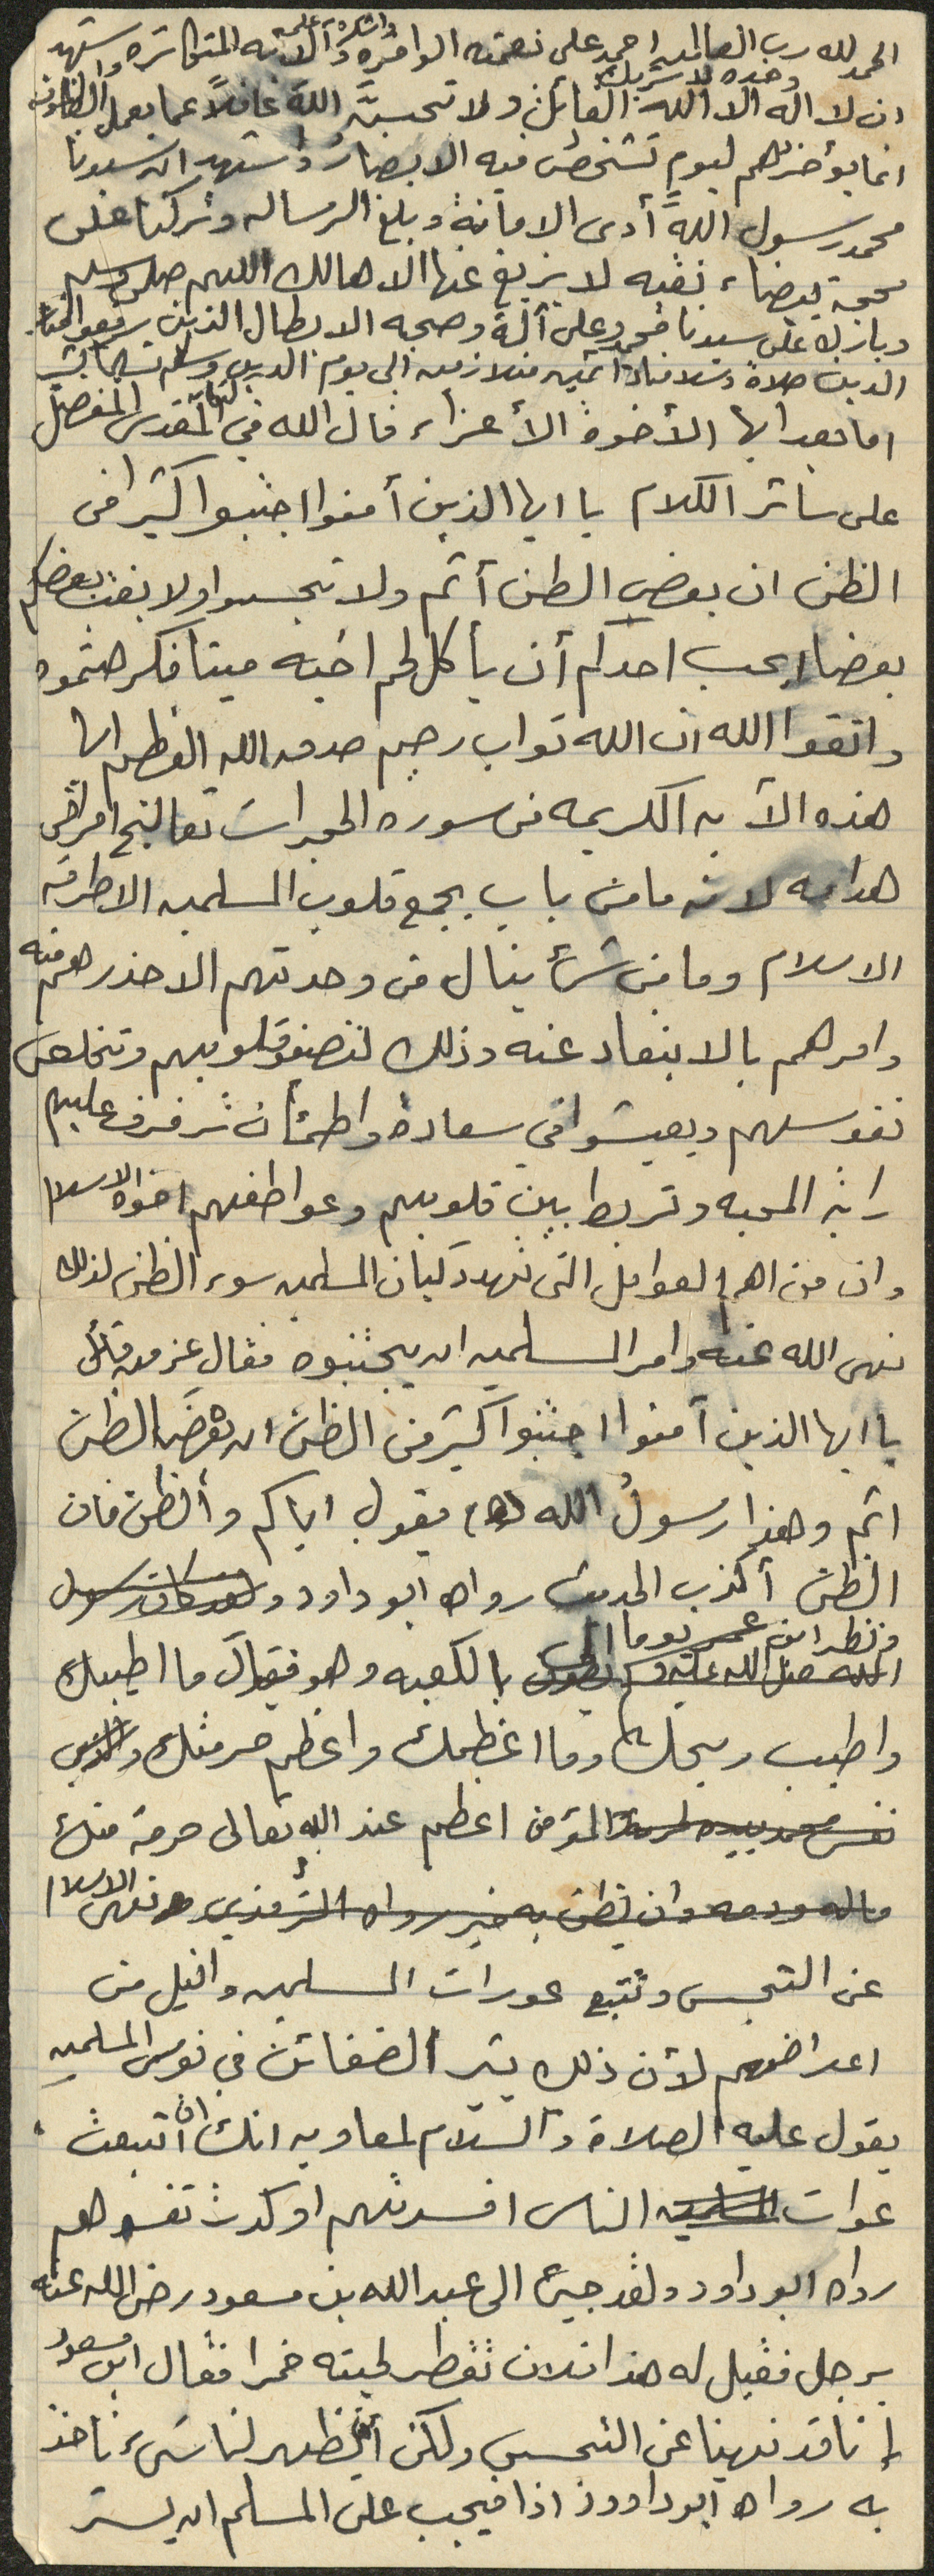 الحمد لله رب العالمين احمد على نعمته الوافره واشكره على آلائه المتكاثره واشهد
ان لا اله الا الله وحده لا شريك له القائل ولا تحسبنَّ الله غافلاً عما يعمل الظالمون
انما يؤخرهم ليوم تشخص فيه الابصارُ واشهد ان سيدنا
محمد رسول الله أدى الامانة وبلغ الرساله وتركنا على
محجة بيضاء نقيه لا يزيغ عنها الا هالك اللهم صلى وسلم
وبارك على سيدنا محمد وعلى آله وصحبه الابطال الذين رفعوا
الدين صلاة وسلاما دائمين متلازمين الى يوم الدين وسلم تسليما كثيرا
اما بعد ايها الأخوة الأعزاء قال الله في كتابه المقدس المفضل
على سائر الكلام يا ايها الذين أمنوا اجتنبوا كثيرا من
الظن ان بعض الظن أثم ولا تجسسوا ولا يغتب بعضكم
بعضا ايحب احدكم أن يأكل لحم اخيه ميتا فكرهتموه
واتقوا الله ان الله تواب رحيم صدق الله العظيم ايها
هذه الآيه الكريمه من سوره الحجرات تعالج امراض
هدامه لانه ما من باب يجمع قلوب المسلمين الا طرقه
الاسلام وما من شئ ينال من وحدتهم الا حذرهم منه
وامرهم بالابتعاد عنه وذلك لتصفو قلوبهم وتخلص
نفوسهم ويعيشوا في سعادة واطمئنان ترفرف عليهم
راية المحبه وتربط بين قلوبهم وعواطفهم اخوة الاسلام
وان من اهم العوامل التى تهدد كيان المسلمين سوء الظن لذلك
نهى الله عنه وامر المسلمين ان يجتنبوه فقال عز من قائل
يا ايها الذين آمنوا اجتنبوا كثيرا من الظن ان بعض الظن
اثم وهذا رسولُ الله (ص) يقول اياكم والظن فان
الظن أكذب الحديث رواه ابو داود ولقد كان رسول
ونظر ابن عمر يوما الى
الله صلى الله عليه وسلم يطوف بالكعبه وهو فيقول ما اطيبك
واطيب ريحك وما اعظمك واعظم حرمتك والذى
نفس محمد بيده لحرمة المؤمن اعظم عند الله تعالى حرمة منك
ماله ودمه وان يظن به خير رواه الترمذي ونهى الاسلام
عن التجسس وتتبع عورات المسلمين والنيل من
اعراضهم لأن ذلك يثير الضغائن في نفوس المسلمين
يقول عليه الصلاة والسلام لمعاويه انك ان اتبعت
عوات المسلمين الناس افسدتهم او كدت تفسدهم
رواه ابو داود ولقد جيئ الى عبد الله بن مسعود رضى الله عنه
برجل فقيل له هذا فلان تقطر لحيته خمرا فقال ابن مسعود
إنا قد نهينا عن التجسس ولكن أن يظهر لنا شيء نأخذ
به رواه ابو داوود اذا فيجب على المسلم ان يستر